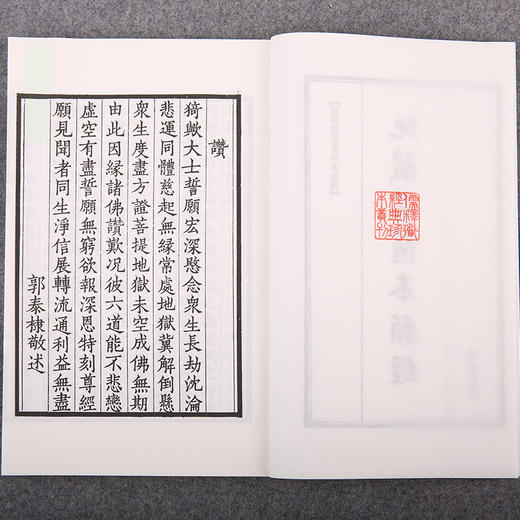 儒釋道
經典珍
本叢刊
讚
猗歟大士誓願宏深愍念衆生長劫沈淪
悲運同體慈起無緣常處地獄冀解倒懸
衆生度盡方證菩提地獄未空成佛無期
由此因緣諸佛讚歎况彼六道能不悲戀
虛空有盡誓願無窮欲報深恩特刻尊經
願見聞者同生淨信展轉流通利益無盡
郭泰棣敬述